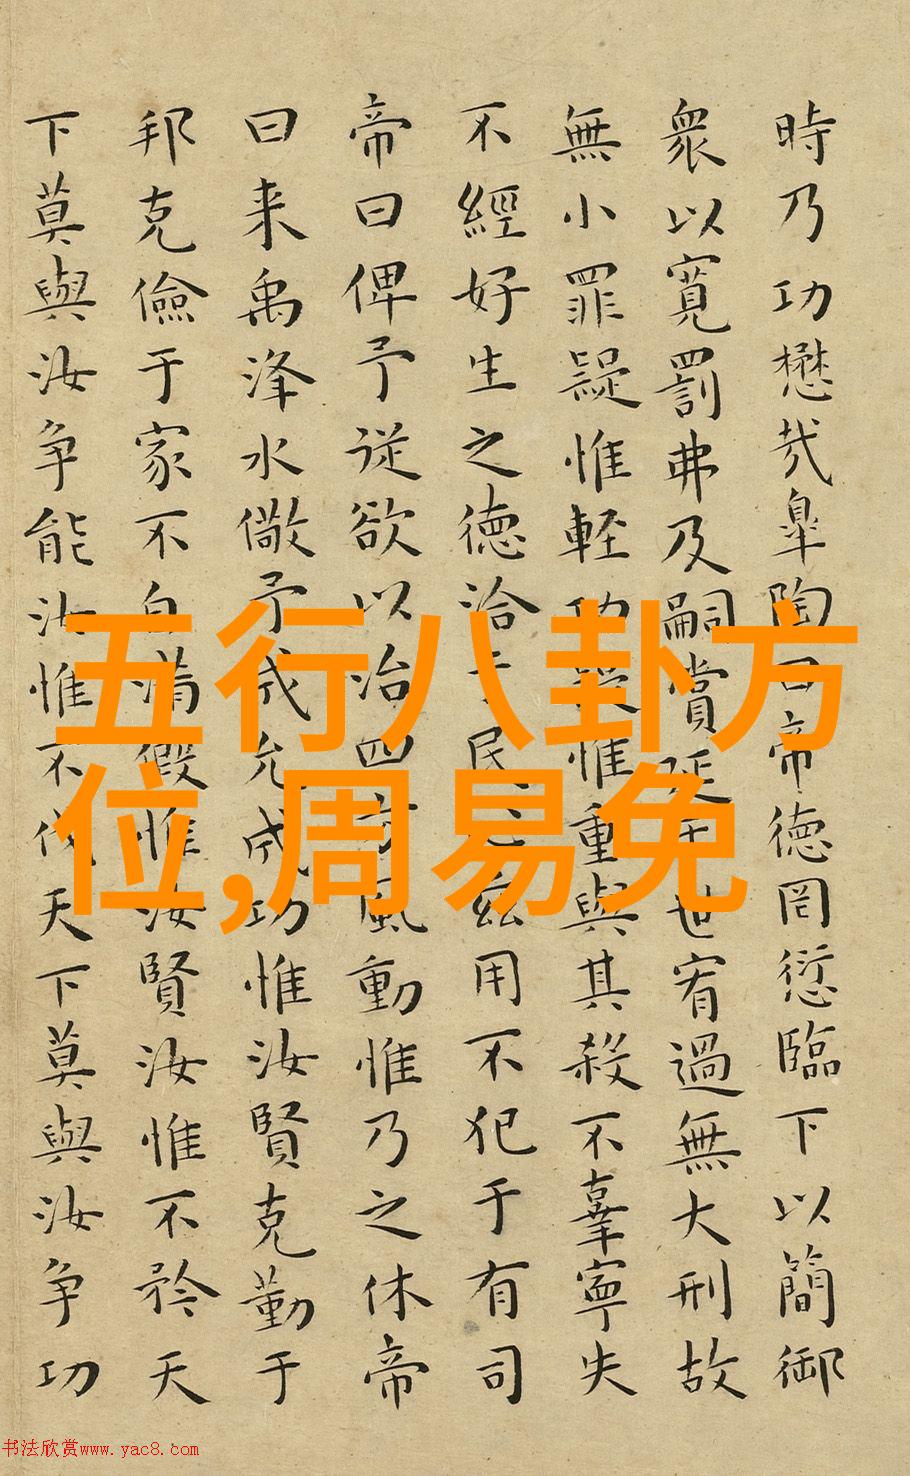 時乃功懋哉皐陶曰帝徳罔愆臨下以簡御
衆以寛罰弗及嗣賞延于世宥過無大刑故
無小罪疑惟軽功疑惟重與其殺不辜寧失
不經好生之徳洽于民心茲用不犯于有司
帝曰俾予従欲以治四方風動惟乃之休帝
曰来禹洚水儆予成允成功惟汝賢克勤于
邦克儉于家不自満假惟汝賢汝惟不矜天
下莫與汝争能汝惟不伐天下莫與汝争功
五行八卦方
位,周易免
书法欣赏www.yac8.com